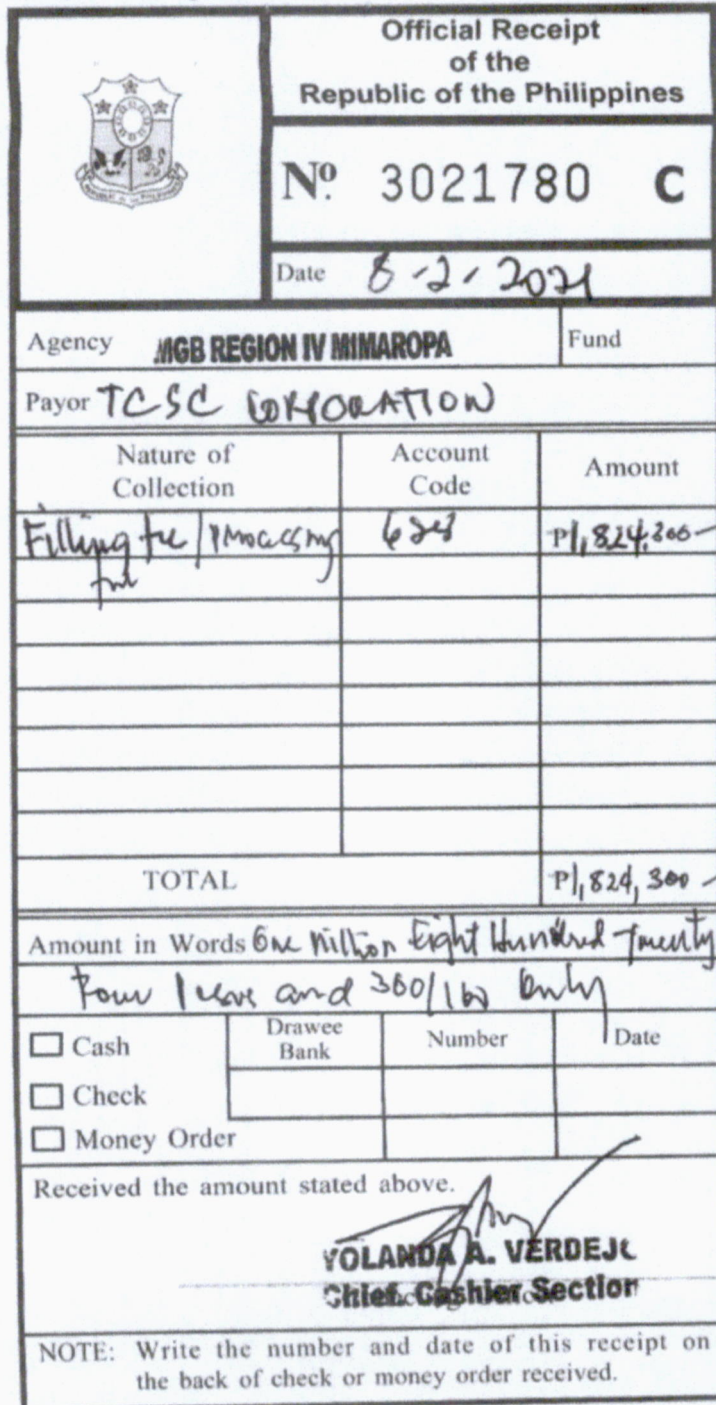 Official Receipt
of the
Republic of the Philippines
Nº 3021780 C
Date 8-2-2021
Agency MGB REGION IV MIMAROPA Fund
Payor TCSC CORPORATION
Nature of Collection Account Code Amount
Filling fee / Processing 628 P1,824,300-
fee
TOTAL P1,824,300-
Amount in Words One Million Eight Hundred Twenty
Four Pesos and 300/100 Only
Cash Drawee Bank Number Date
Check
Money Order
Received the amount stated above.
YOLANDA A. VERDEJO
Chief Cashier Section
NOTE: Write the number and date of this receipt on
the back of check or money order received.